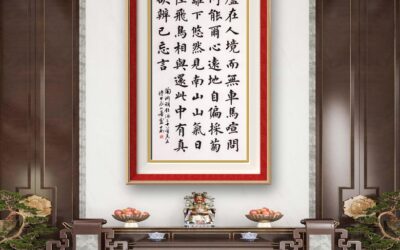 廬在人境而無車馬喧問
何能爾心遠地自偏採菊
籬下悠然見南山山氣日
佳飛鳥相與還此中有真
欲辨已忘言